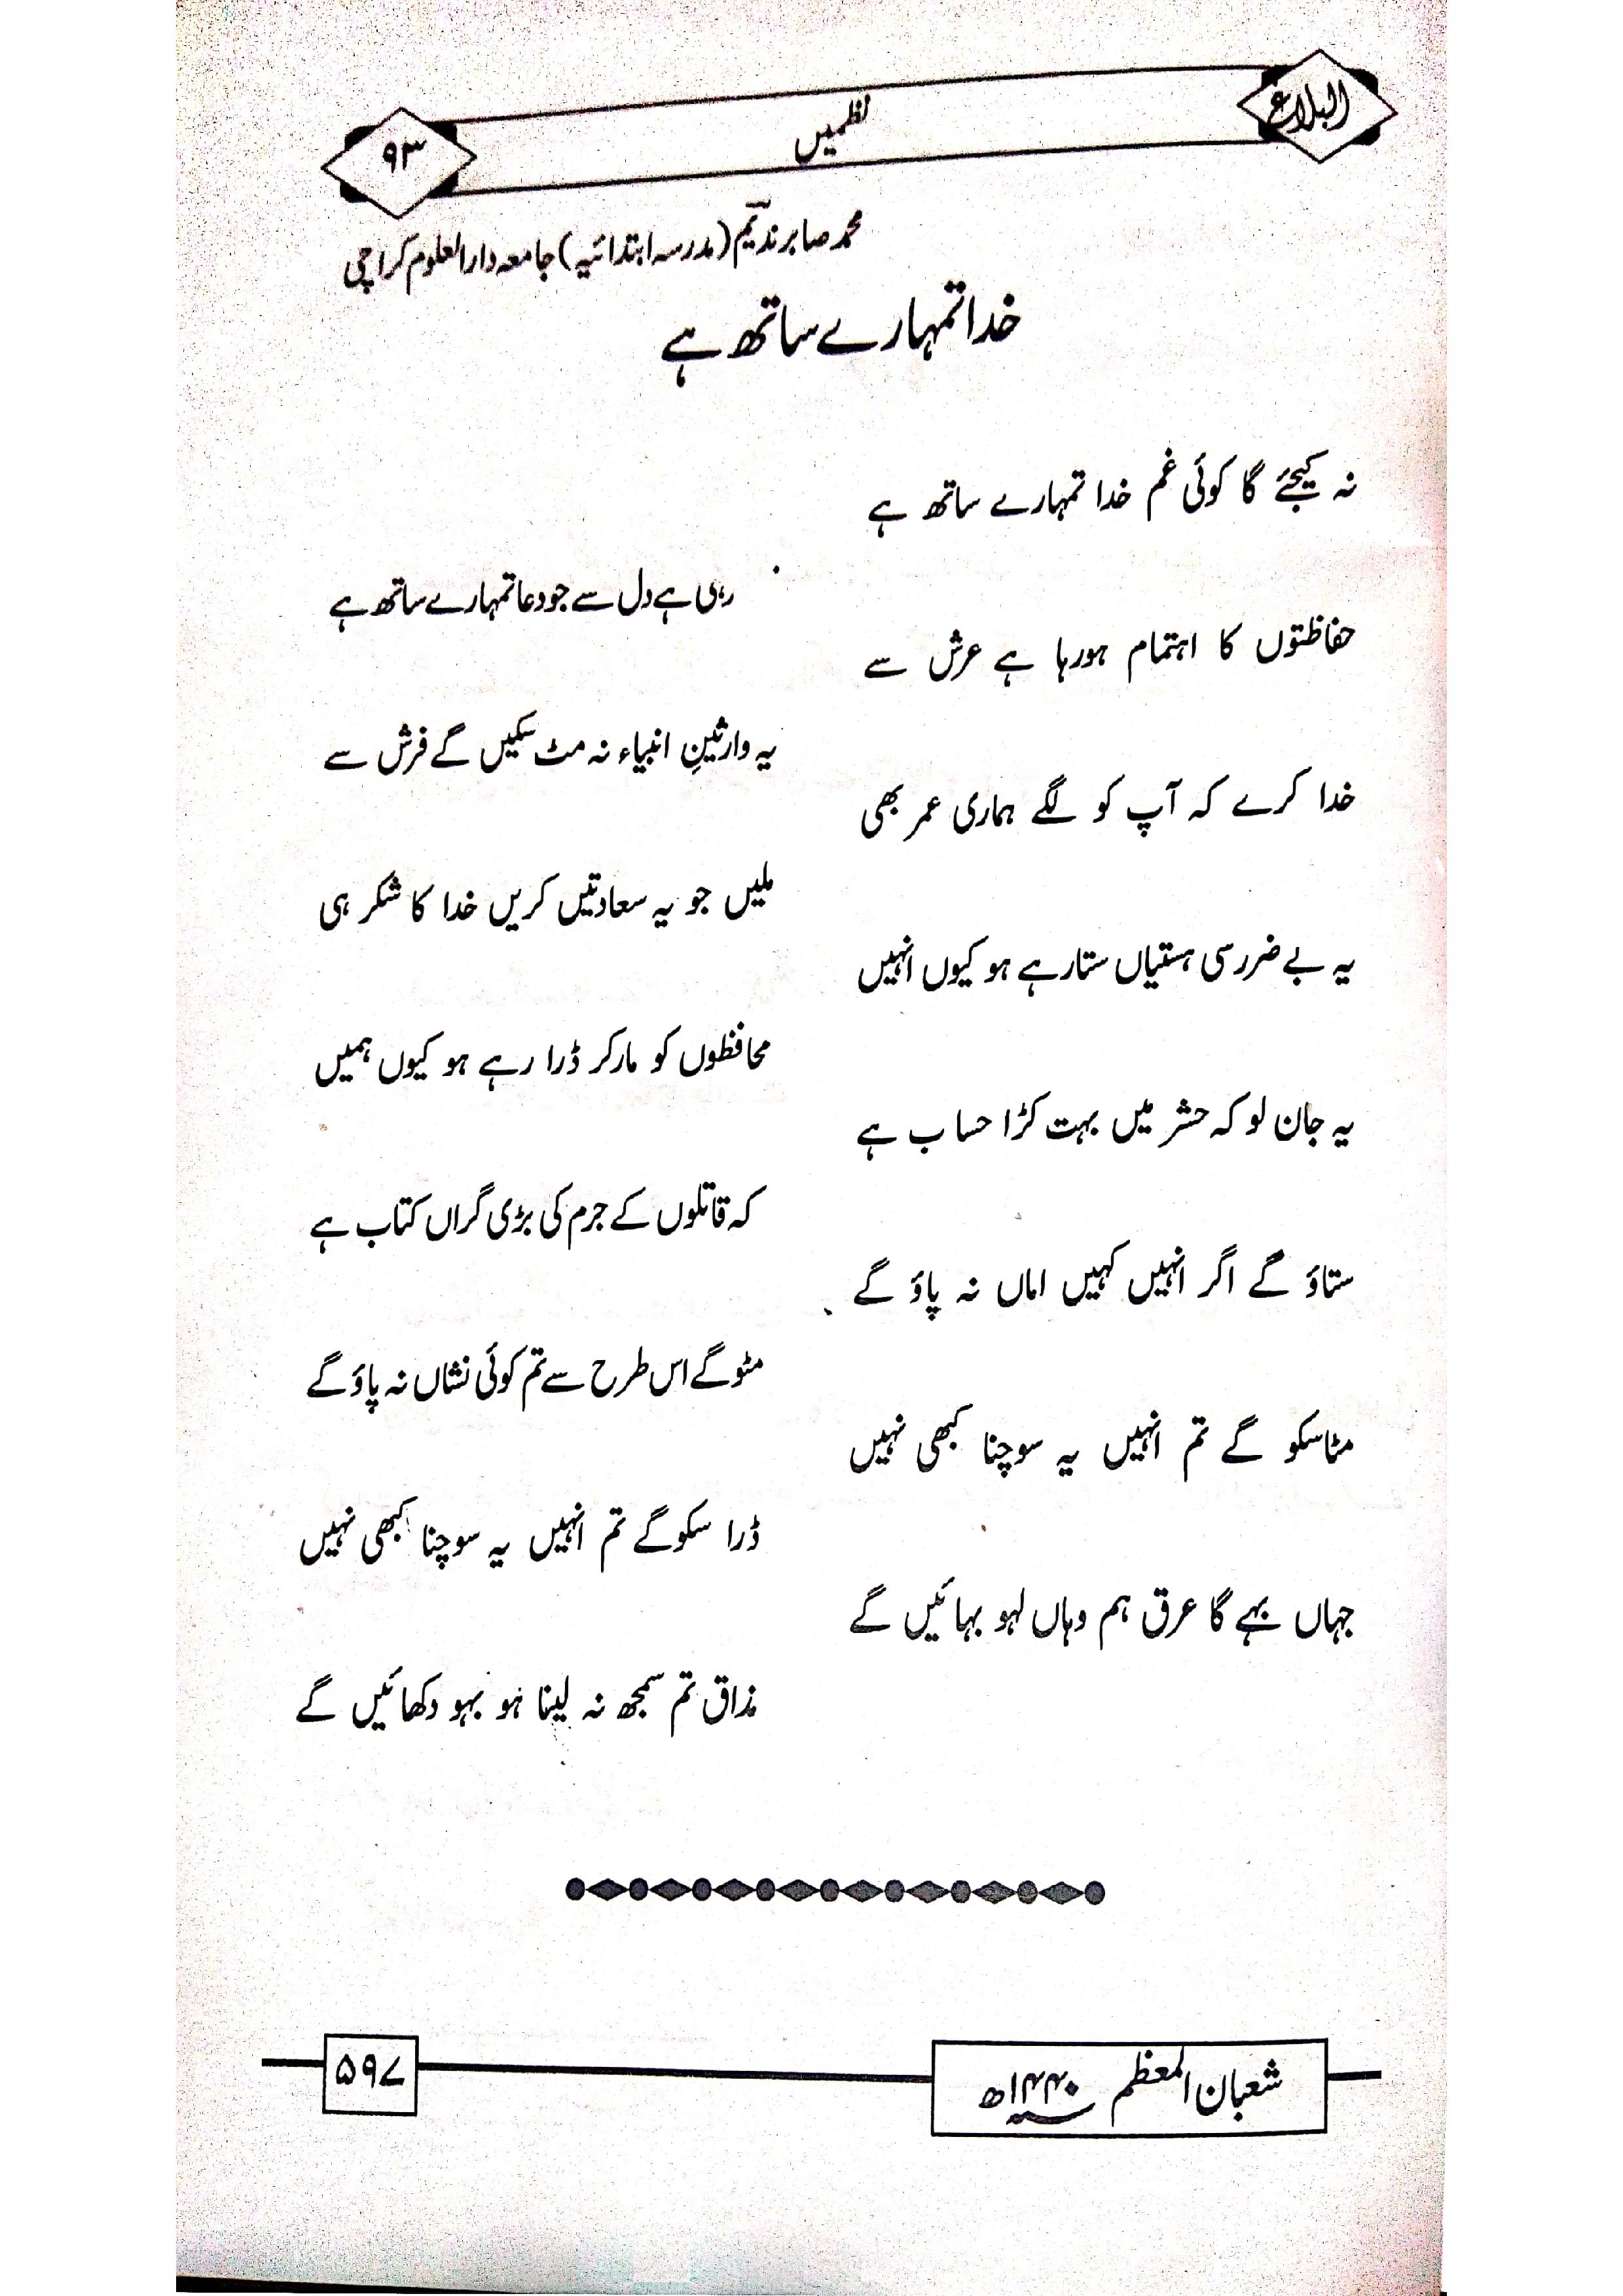 البلاغ
نظمیں
۹۳
محمد صابر ندیم (مدرسہ ابتدائیہ) جامعہ دارالعلوم کراچی
خدا تمہارے ساتھ ہے
نہ کیجئے گا کوئی غم خدا تمہارے ساتھ ہے
رہی ہے دل سے جو دعا تمہارے ساتھ ہے
حفاظتوں کا اہتمام ہورہا ہے عرش سے
یہ وارثینِ انبیاء نہ مٹ سکیں گے فرش سے
خدا کرے کہ آپ کو لگے ہماری عمر بھی
ملیں جو یہ سعادتیں کریں خدا کا شکر ہی
یہ بے ضرر سی ہستیاں ستارہے ہو کیوں انہیں
محافظوں کو مارکر ڈرا رہے ہو کیوں ہمیں
یہ جان لو کہ حشر میں بہت کڑا حساب ہے
کہ قاتلوں کے جرم کی بڑی گراں کتاب ہے
ستاؤ گے اگر انہیں کہیں اماں نہ پاؤ گے
مٹوگے اس طرح سے تم کوئی نشاں نہ پاؤ گے
مٹاسکو گے تم انہیں یہ سوچنا کبھی نہیں
ڈرا سکوگے تم انہیں یہ سوچنا کبھی نہیں
جہاں بہے گا عرق ہم وہاں لہو بہائیں گے
مذاق تم سمجھ نہ لینا ہو بہو دکھائیں گے
شعبان المعظم ۱۴۴۰ھ
۵۹۷